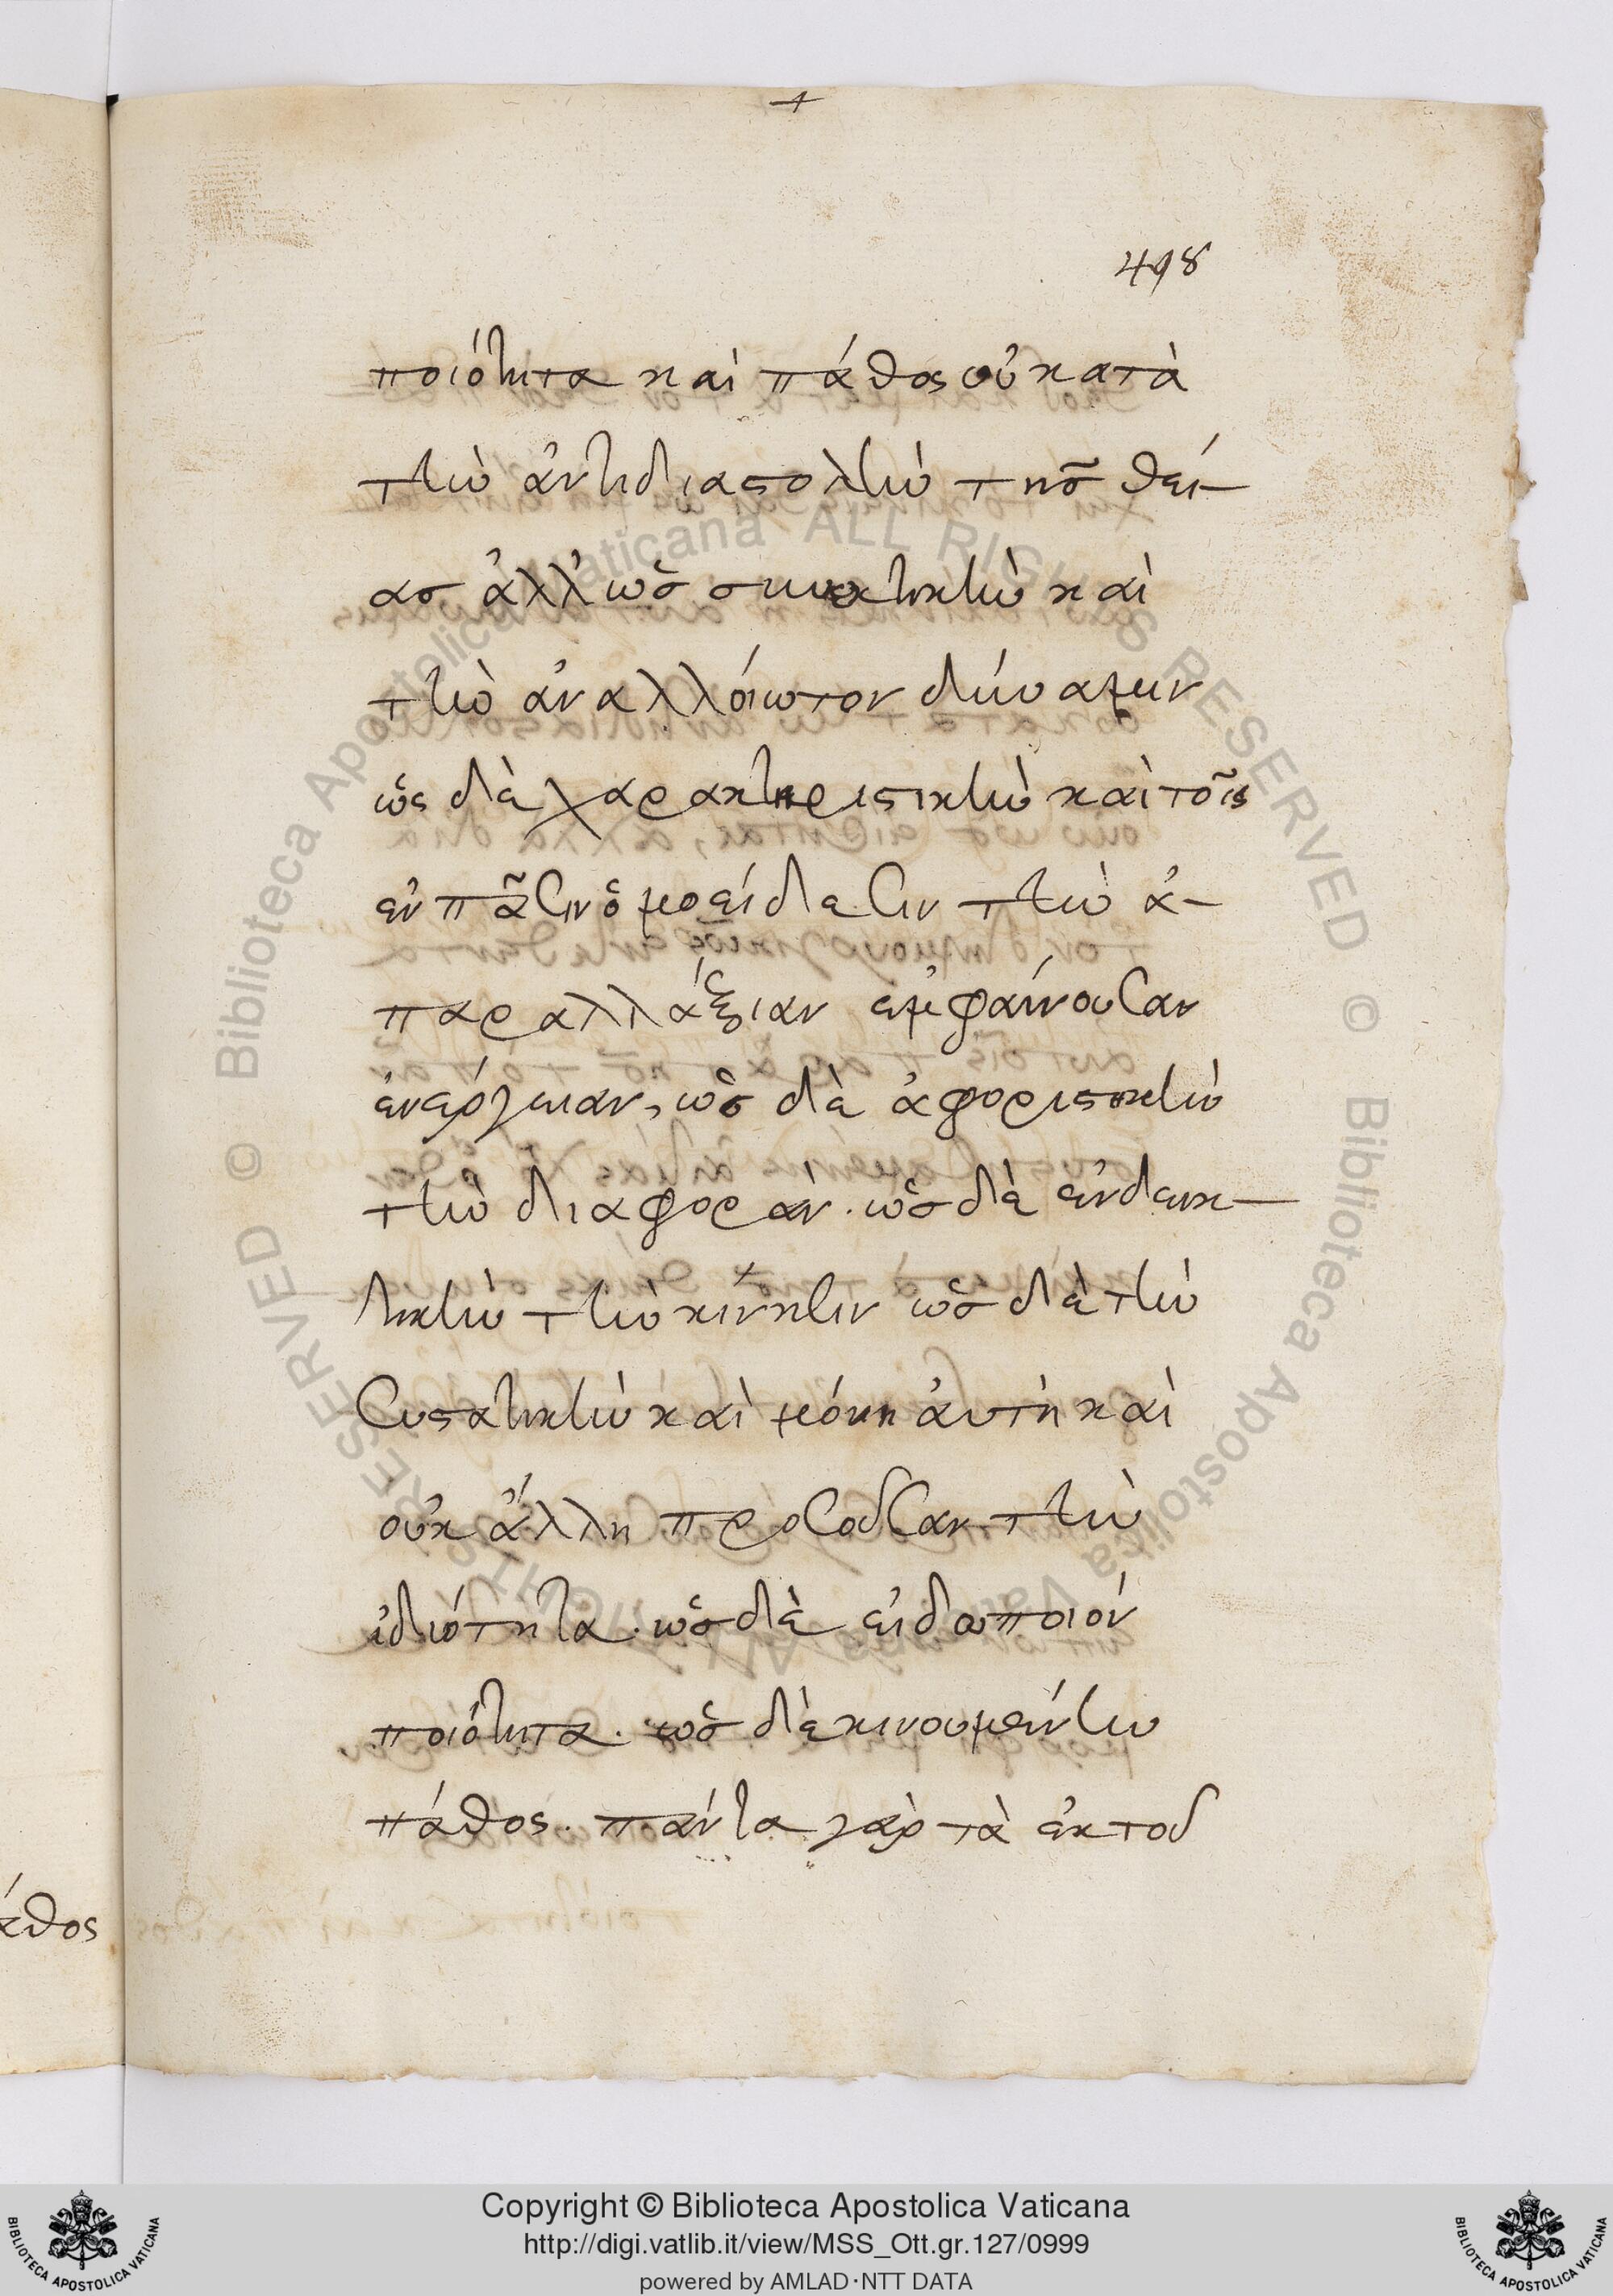 498
ποιότητα καὶ πάθος οὐ κατὰ
τὴν ἀντιδιαστολὴν τῆς θεί-
ας ἀλλ' ὡς συνεκτικὴν καὶ
τὴν ἀναλλοίωτον δύναμιν
ὡς δὲ χαρακτηριστικὴν καὶ τοῖς
ἐν πᾶσιν ὁμοείδεσιν τὴν ἀ-
παραλλάξιαν ἐμφαίνουσαν
ἐνέργειαν, ὡς δὲ ἀφοριστικὴν
τὴν διαφορὰν. ὡς δὲ ἐνδεικ-
τικὴν τὴν κίνησιν ὡς δὲ τὴν
συστατικὴν καὶ μόνη αὐτῇ καὶ
οὐκ ἄλλη προσοῦσαν τὴν
ἰδιότητα. ὡς δὲ εἰδοποιὸν
ποιότητα. ὡς δὲ κινουμένην
πάθος. πάντα γὰρ τὰ ἐκ τοῦ
άθος
© Biblioteca Apostolica Vaticana ALL RIGHTS RESERVED
© Biblioteca Apostolica Vaticana ALL RIGHTS RESERVED
Copyright © Biblioteca Apostolica Vaticana
http://digi.vatlib.it/view/MSS_Ott.gr.127/0999
powered by AMLAD·NTT DATA
BIBLIOTECA APOSTOLICA VATICANA
BIBLIOTECA APOSTOLICA VATICANA